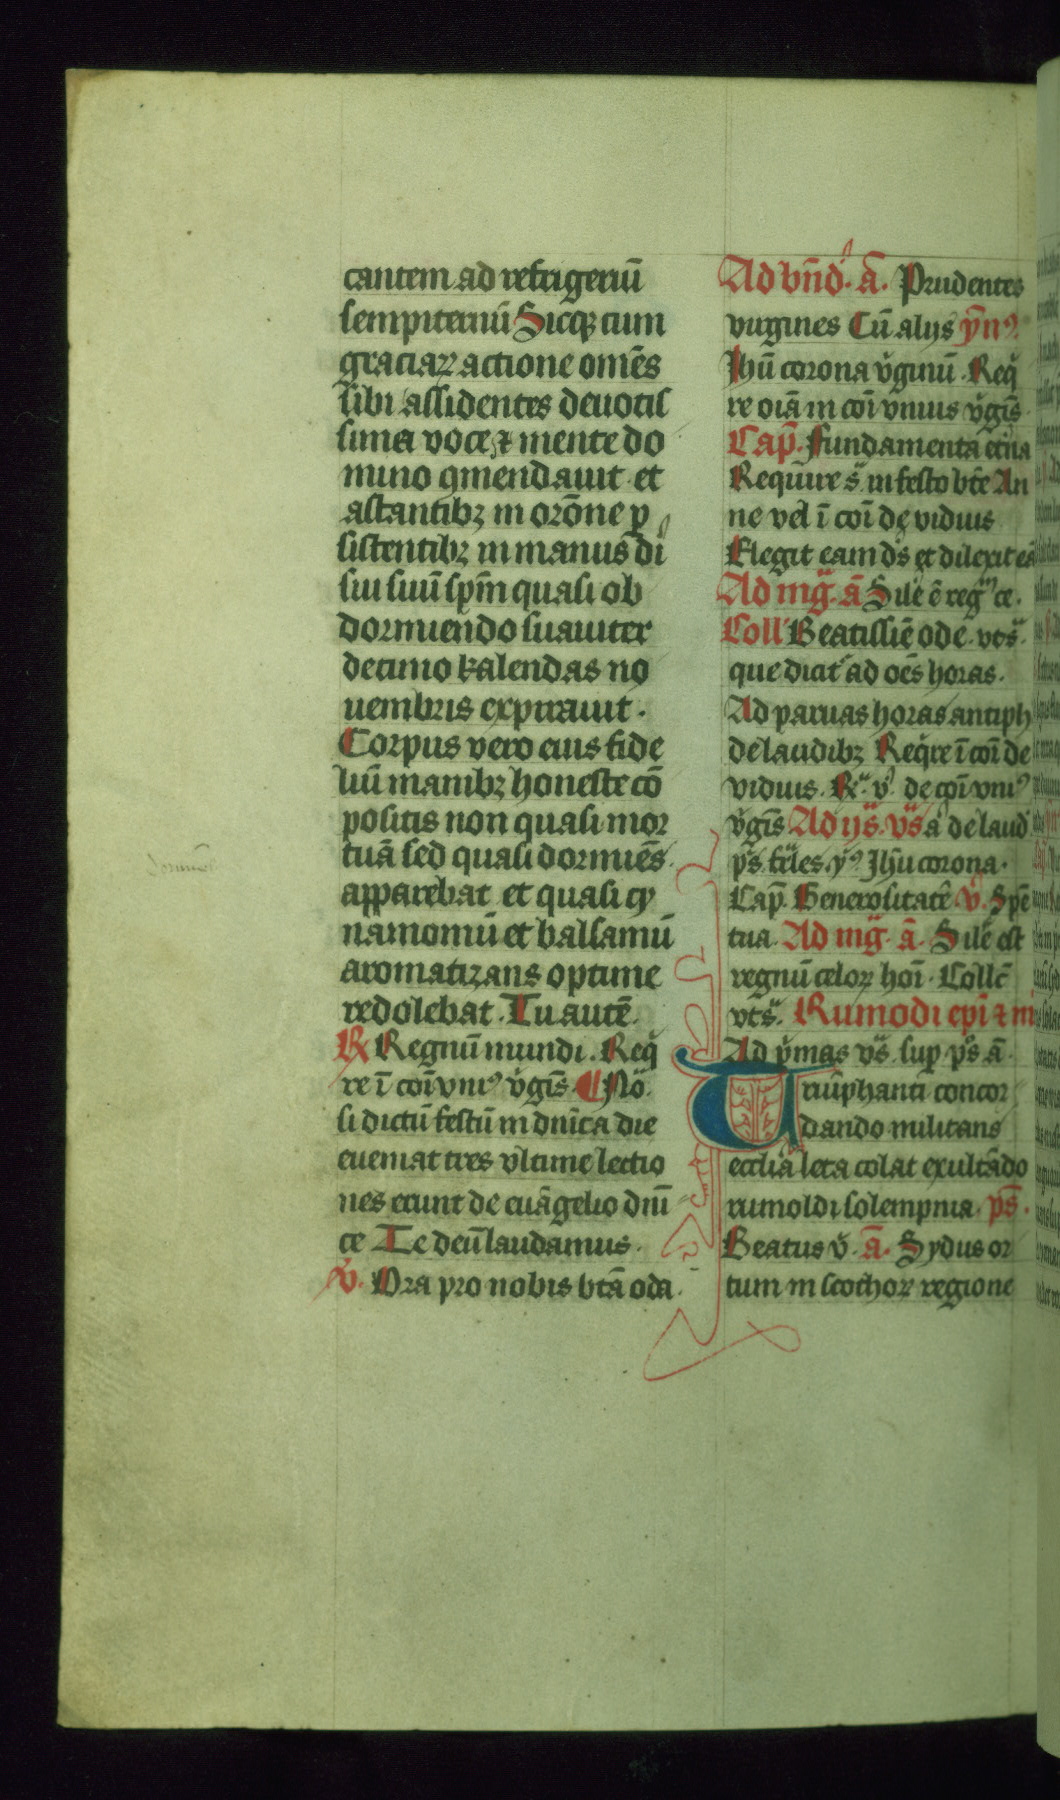 cantem ad refrigeriū
sempiternū Sicqꝫ cum
graciaꝝ actione om̄es
sibi assidentes deuotis
sima voce ⁊ mente do
mino ꝯmendauit et
astantibꝫ in orōne ꝑ
sistentibꝫ in manus di
sui suū sp̄m quasi ob
dormiendo suauiter
decimo kalendas no
uembris expirauit.
Corpus vero eius fide
liū manibꝫ honeste cō
positis non quasi mor
tuā sed quasi dormiēs
apparebat et quasi cy
namomū et balsamū
aromatizans optime
redolebat. Tu autē.
℟ Regnū mundi. Req̇
re ī coī vniꝰ v̇gīs. ¶ No
si dictū festū in dn̄ica die
eueniat tres vltime lectio
nes erunt de euāgelio dnī
ce Te deū laudamus.
v̇. Ora pro nobis btā oda.
Ad bn̄d. ā. Prudentes
virgines Cū alijs ẏnꝰ.
Jhū corona v̇ginū. Req̇
re oīā in coī vnius v̇gīs.
Cap̄. Fundamenta et̄na
Require s. in festo btē An
ne vel ī coī de viduis
Elegit eam ds̄ et dilexit eā
Ad mg̈. ā Sile ē regͫ ce.
Coll Beatissīe ode. vts̈.
que dicit᷑ ad oēs horas.
Ad paruas horas antiph
de laudibꝫ Req̇re ī coī de
viduis. ℟. v̇. de coī vniꝰ
v̇gīs Ad ijs. vs̄ ā de laud
ps̄. fēles. yꝰ Jhū corona.
Cap̄. Generositatē. v̇. Spē
tua. Ad mg̈. ā. Sile est
regnū celoꝝ hoī. Collc̄
vts̈. Rumodi epī ⁊ m̄
Ad p̄mas vs̄. sup ps̄ ā.
Triūphanti concor
dando militans
ecclīa leta colat exultādo
rumoldi solempnia. ps̄.
Beatus v̇. ā. Sydus or
tum in scothoꝝ regione